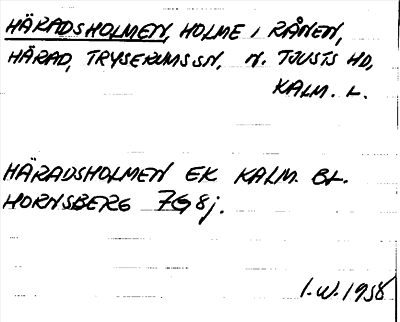 HÄRADSHOLMEN, HOLME I RÅNEN,
HÄRAD, TRYSERUMS SN, N. TJUSTS HD,
KALM. L.
HÄRADSHOLMEN EK KALM. BL.
HORNSBERG 7G 8j.
I.W. 1958